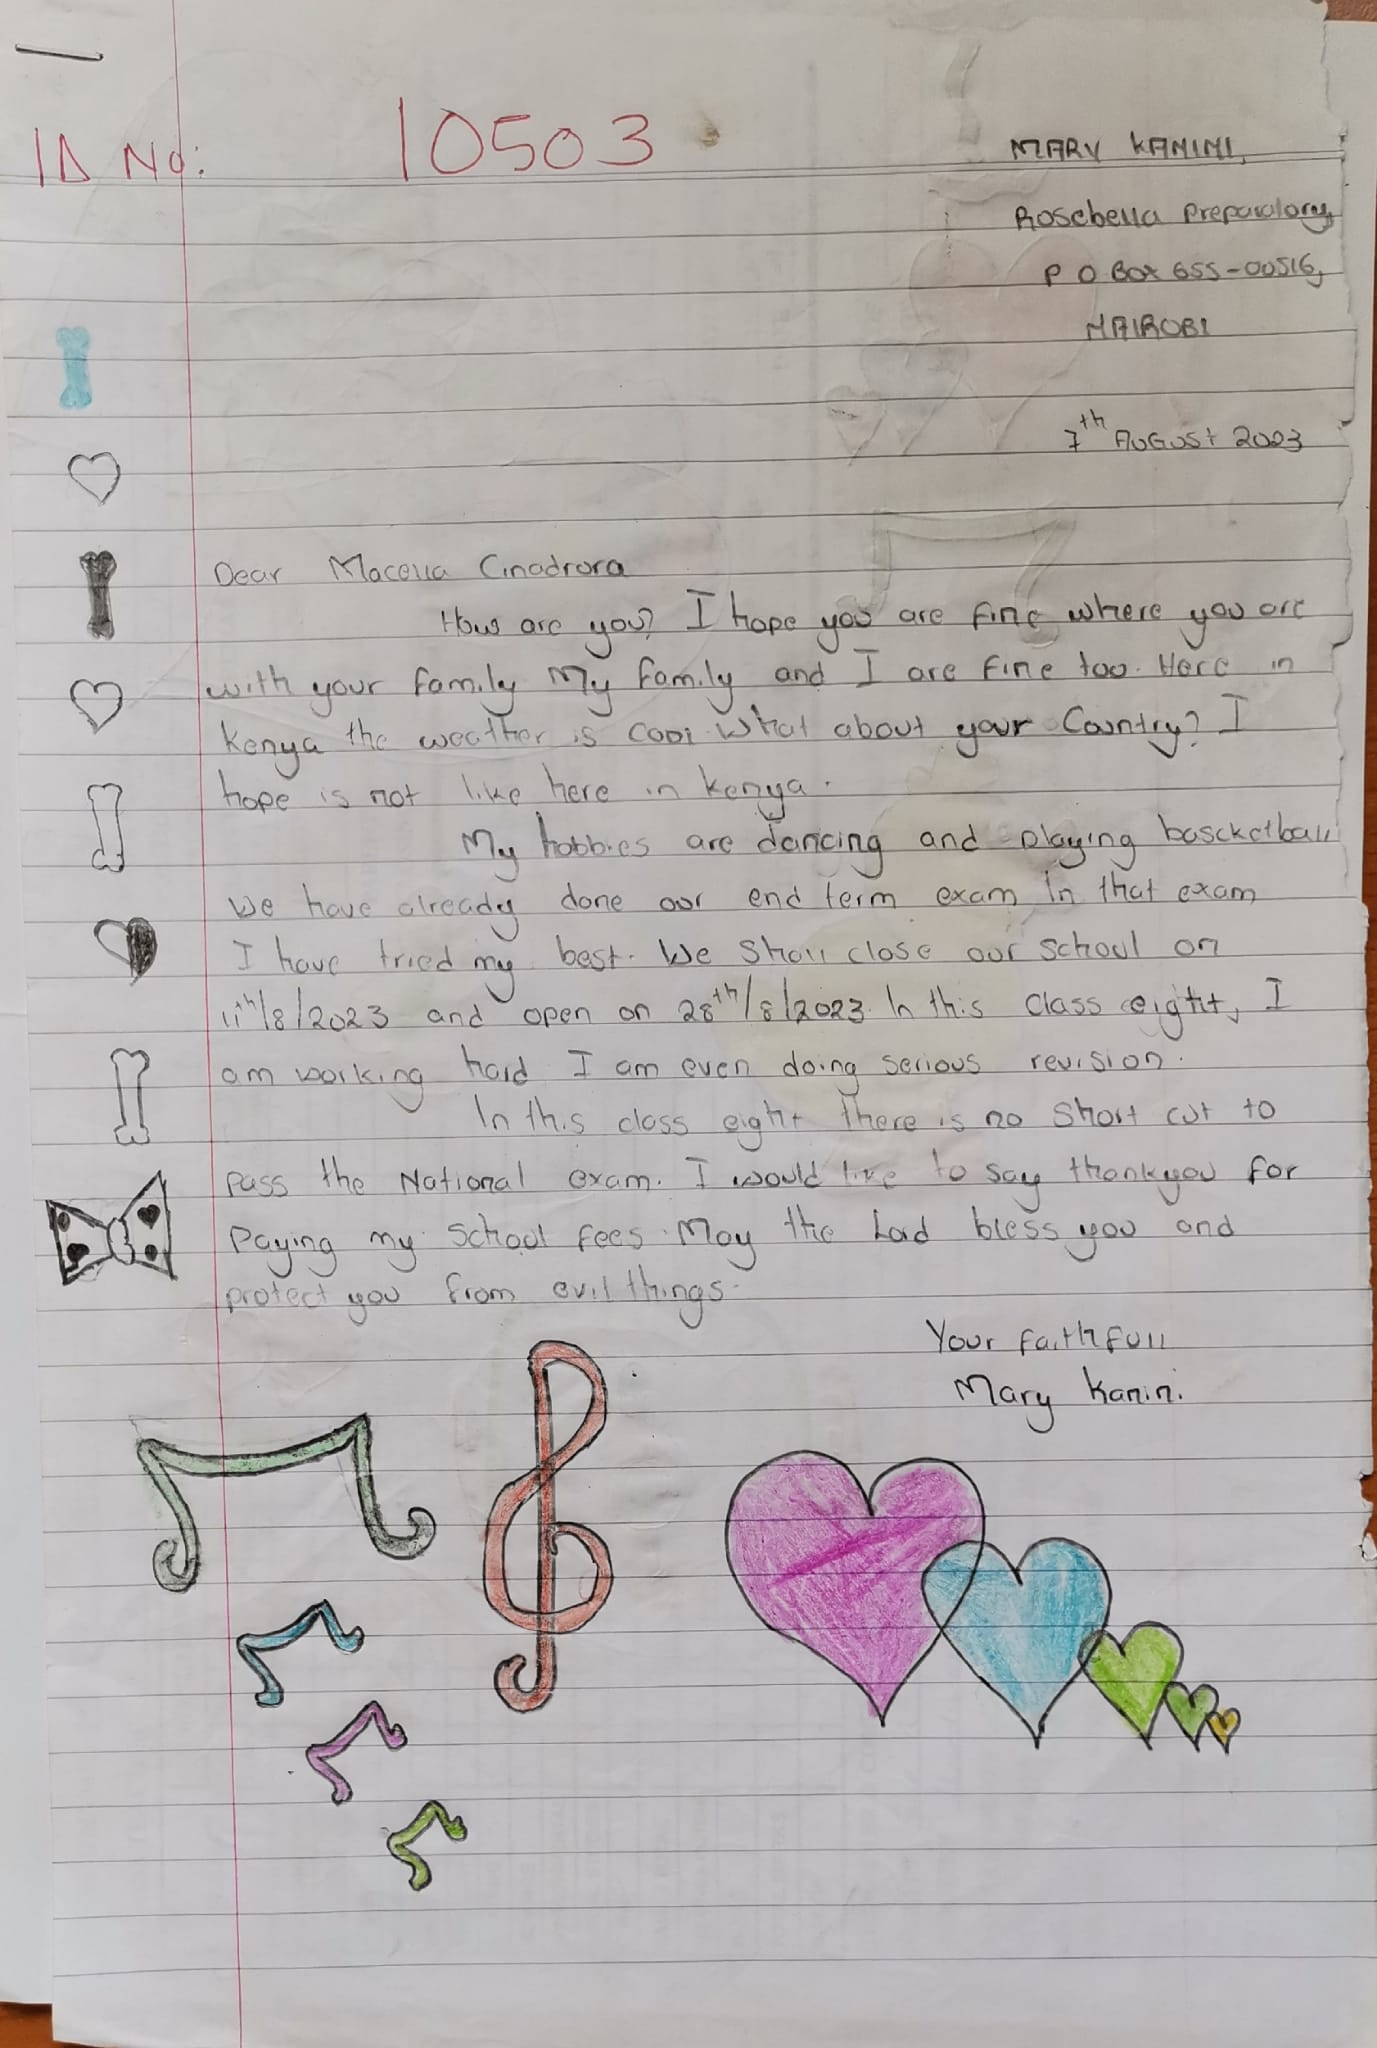 ID No: 10503
MARY KANINI,
Rosebella Preparatory,
P O Box 655-00516,
NAIROBI
7th AUGUST 2023
Dear Macella Cinadrora
How are you? I hope you are fine where you are
with your family My family and I are fine too. Here in
Kenya the weather is cool what about your Country? I
hope is not like here in kenya.
My hobbies are dancing and playing bascketball
We have already done our end term exam In that exam
I have tried my best. We shall close our school on
11th/8/2023 and open on 28th/8/2023. In this class eight, I
am working hard I am even doing serious revision.
In this class eight there is no short cut to
pass the National exam. I would like to say thankyou for
Paying my school fees. May the Lord bless you and
protect you from evil things.
Your faithfull
Mary Kanini